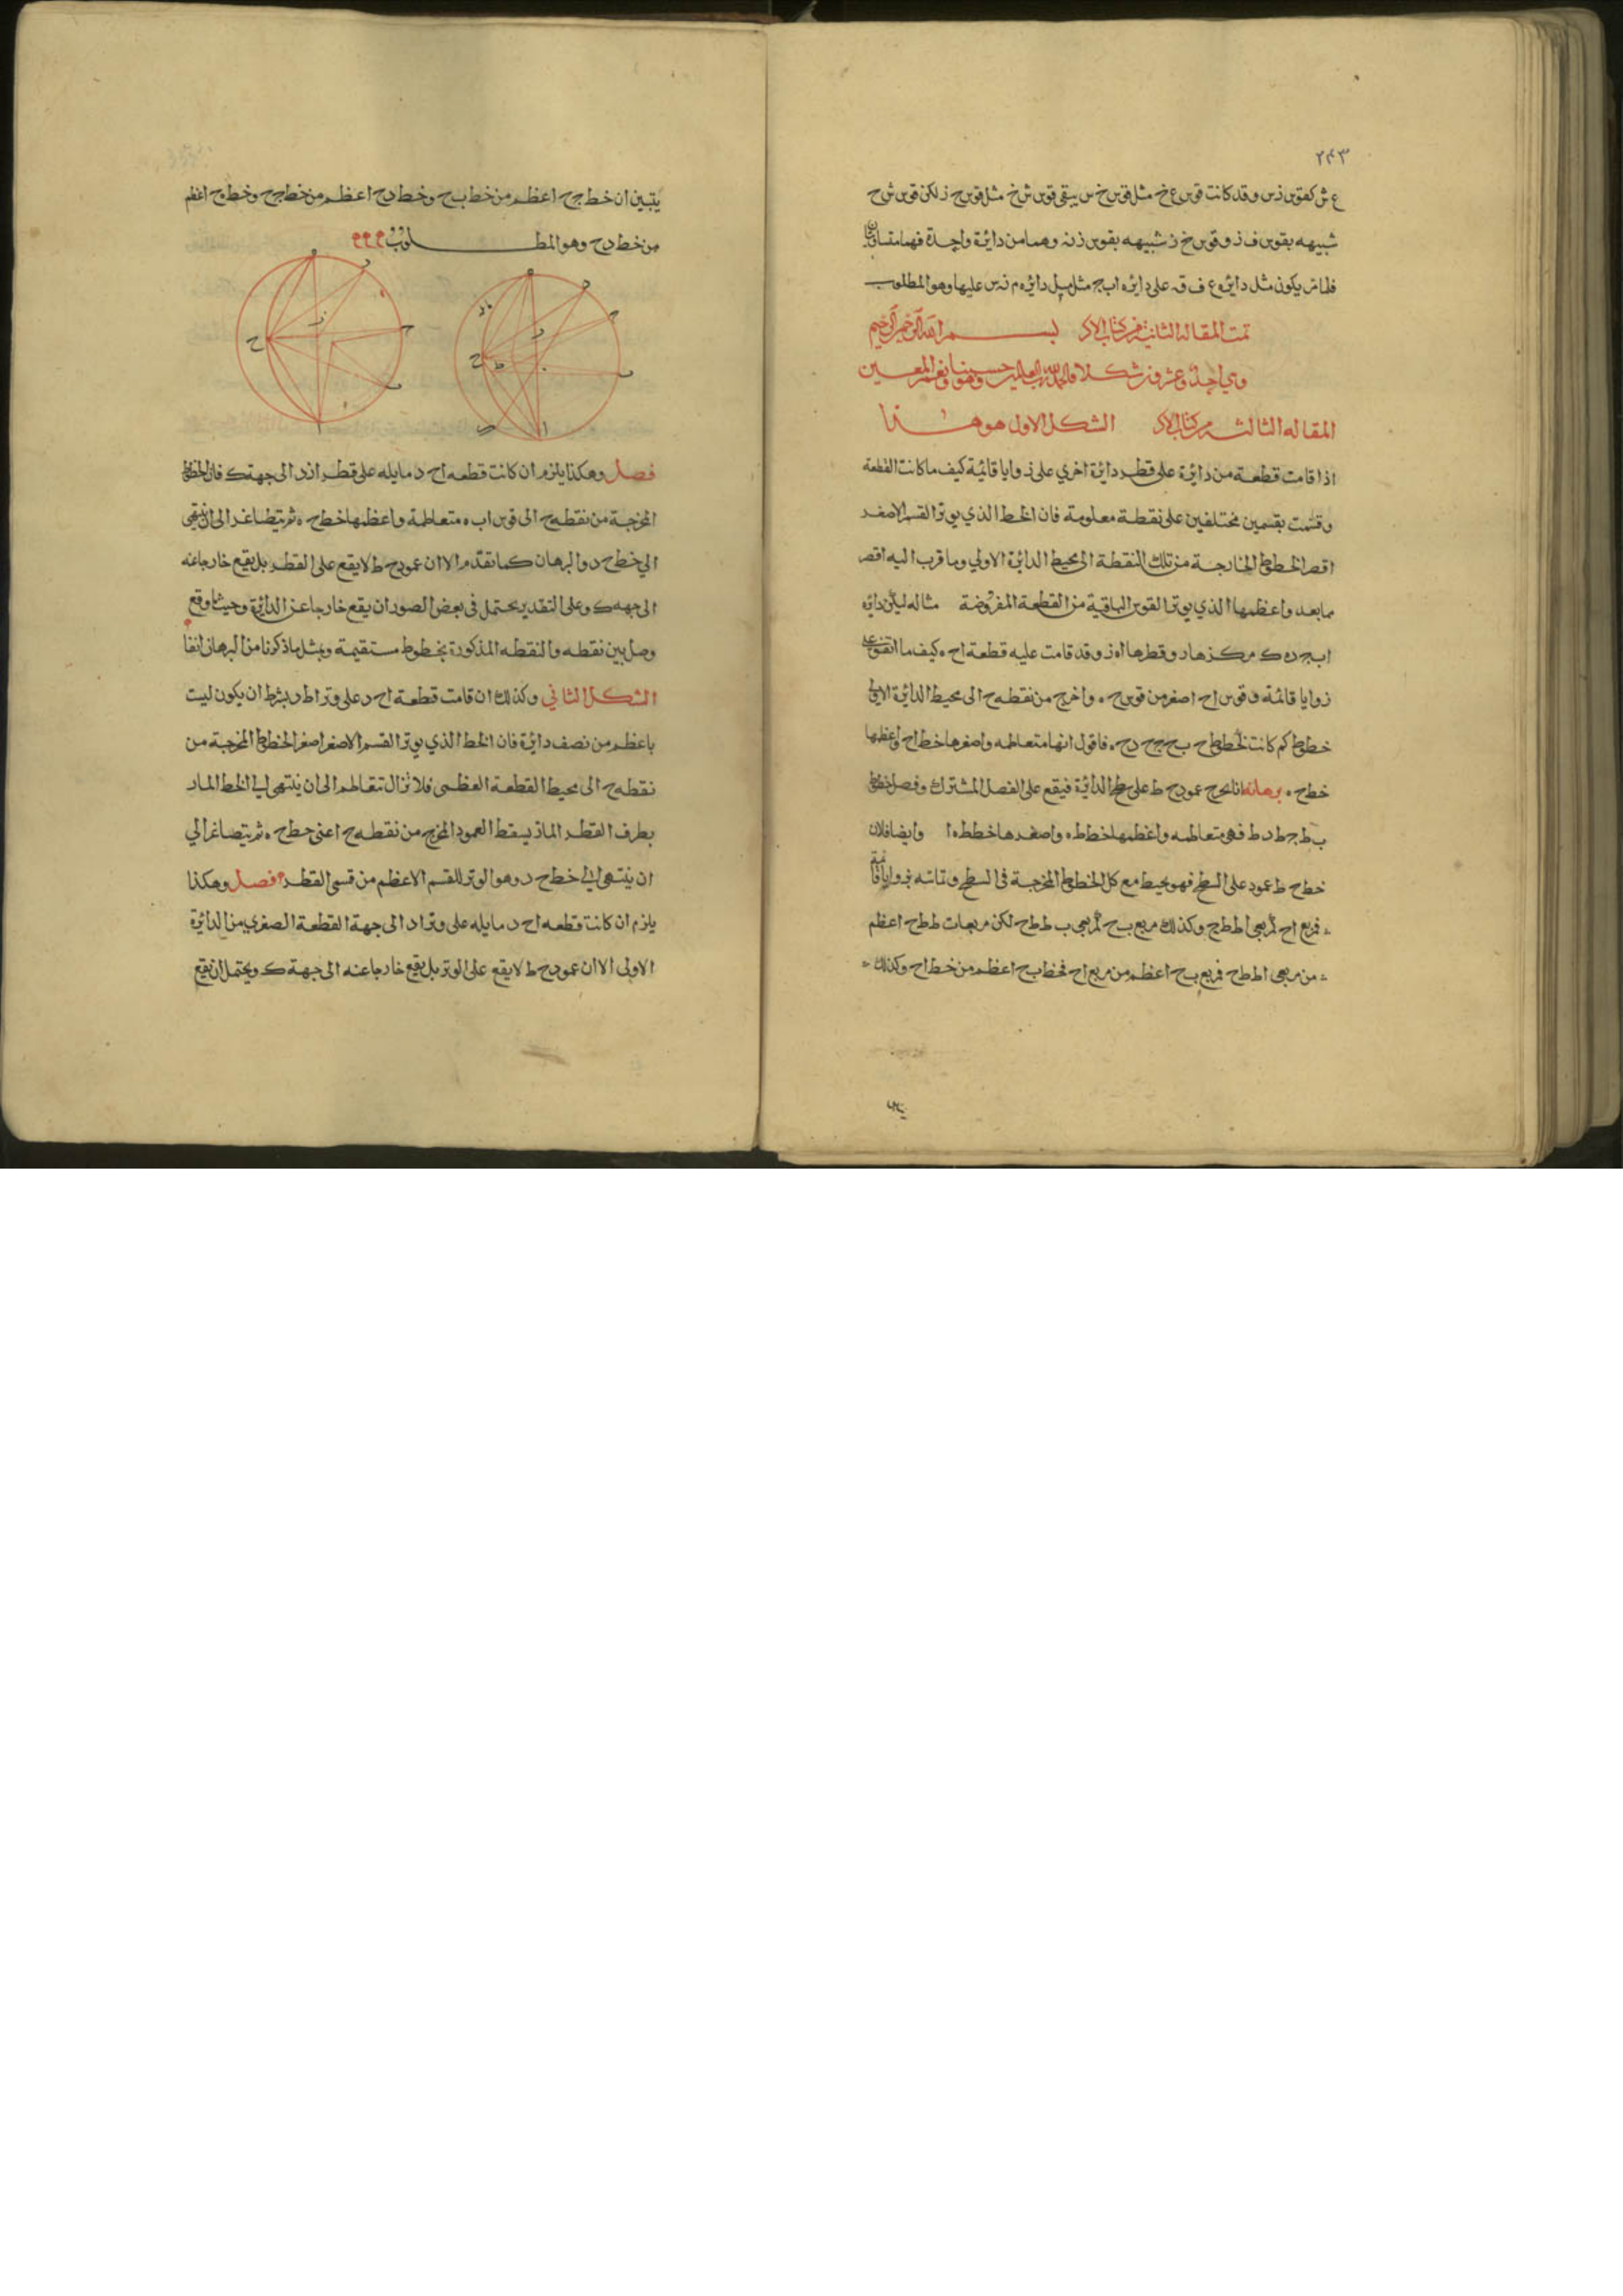 ٢٤٣
ع ش كقوس ز س وقد كانت قوس ع خ مثل قوس خ س يبقى قوس ش خ مثل قوس خ ز لكن قوس ش ح
شبيهه بقوس ف ز وقوس خ ز شبيهه بقوس ز نه وهما من دائرة واحدة فهما متساويان
فلماس يكون مثل دائره ع ف قه على دايره ابج مثل ميل دائره م نه س عليها وهو المطلوب
تمت المقاله الثانيه من كتاب الاكر بسم الله الرحمن الرحيم
وهي احد وعشرون شكلا والحمد لله رب العالمين حسبنا ونعم المعين
المقاله الثالثه من كتاب الاكر الشكل الاول هو هذا
اذا قامت قطعة من دائرة على قطر دائرة اخري على زوايا قائمة كيف ما كانت القطعة
وقسمت بقسمين مختلفين على نقطة معلومة فان الخط الذي يوتر القسم الاصغر
اقصر الخطوط الخارجة من تلك النقطة الى محيط الدائرة الاولي وما قرب اليه اقصر
مما بعد واعظمها الذي يوتر القوس الباقية من القطعة المفروضة مثاله ليكن دايره
ابجده ك مركزها ر وقطرها اه ز وقد قامت عليه قطعة اح ه كيف ما اتفق على
زوايا قائمة وقوس اح اصغر من قوس ح ه واخرج من نقطه ح الى محيط الدائرة الاولى
خطوط كم كانت كخطوط ح ب ح ج ح د ح ه فاقول انها متعاظمه واصغرها خط اح واعظمها
خط ح ه برهانه انا نخرج عمود ح ط على سطح الدائرة فيقع على الفصل المشترك وفصل خطوط
ب ط ج ط د ط فهي متعاظمه واعظمها خط ط ه واصغرها خط ط ا وايضا فلان
خط ح ط عمود على السطح فهو يحيط مع كل الخطوط المخرجة في السطح وتماسه بزوايا قائمة
فمربع اح كمربعي اط ط ح وكذلك مربع ب ح كمربعي ب ط ط ح لكن مربعات ط ط ح اعظم
من مربعي اط ط ح فمربع ب ح اعظم من مربع اح فخط ب ح اعظم من خط اح وكذلك
يتبين ان خط ج ح اعظم من خط ب ح وخط د ح اعظم من خط ج ح وخط ه ح اعظم
من خط د ح وهو المطلوب
فصل وهكذا يلزم ان كانت قطعه اح د مايله على قطر ا ز د الى جهة ك فان الخطوط
المخرجة من نقطه ح الى قوس اب ه متعاظمة واعظمها خط ح ه ثم يتصاغر الى ان ينتهي
الي خط ح د والبرهان كما تقدم الا ان عمود ح ط لا يقع على القطر بل يقع خارجا عنه
الى جهه ك وعلى التقدير يحتمل في بعض الصور ان يقع خارجا عن الدائرة وحيثما وقع
وصل بين نقطه والنقطه المذكورة بخطوط مستقيمة وبمثل ما ذكرنا من البرهان انفا
الشكل الثاني وكذلك ان قامت قطعة اح د على وتر اط د بشرط ان يكون ليست
باعظم من نصف دائرة فان الخط الذي يوتر القسم الاصغر اصغر الخطوط المخرجة من
نقطه ح الى محيط القطعة العظمى فلا تزال تتعاظم الى ان ينتهي الي الخط المار
بطرف القطر المار بمسقط العمود المخرج من نقطه ح اعني خط ح ه ثم يتصاغر الي
ان ينتهي الي خط ح د وهو الوتر للقسم الاعظم من قسمي القطر فصل وهكذا
يلزم ان كانت قطعه اح د مايله على وتر اد الى جهة القطعة الصغري من الدائرة
الاولى الا ان عمود ح ط لا يقع على الوتر بل يقع خارجا عنه الى جهة ك ويحتمل ان يقع